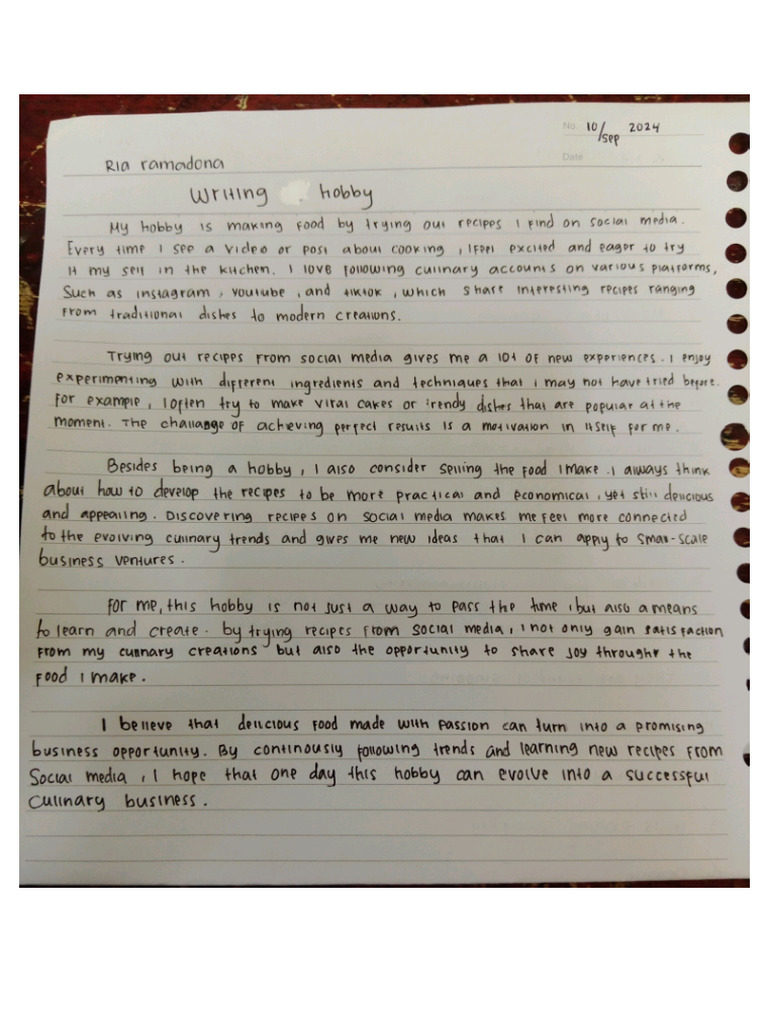 No. 10/sep 2024
Date
Ria ramadona
Writing hobby
My hobby is making food by trying out recipes I find on social media.
Every time I see a video or post about cooking, I feel excited and eager to try
it my self in the kitchen. I love following culinary accounts on various platforms,
Such as instagram, youtube, and tiktok, which share interesting recipes ranging
from traditional dishes to modern creations.
Trying out recipes from social media gives me a lot of new experiences. I enjoy
experimenting with different ingredients and techniques that i may not have tried before.
For example, I often try to make viral cakes or trendy dishes that are popular at the
moment. The challange of achieving perfect results is a motivation in itself for me.
Besides being a hobby, I also consider selling the food I make. I always think
about how to develop the recipes to be more practical and economical, yet still delicious
and appealing. Discovering recipes on social media makes me feel more connected
to the evolving culinary trends and gives me new ideas that I can apply to small-scale
business ventures.
For me, this hobby is not just a way to pass the time, but also a means
to learn and create. by trying recipes from social media, i not only gain satisfaction
from my culinary creations but also the opportunity to share joy throught the
food I make.
I believe that delicious food made with passion can turn into a promising
business opportunity. By continously following trends and learning new recipes from
Social media, I hope that one day this hobby can evolve into a successful
Culinary business.